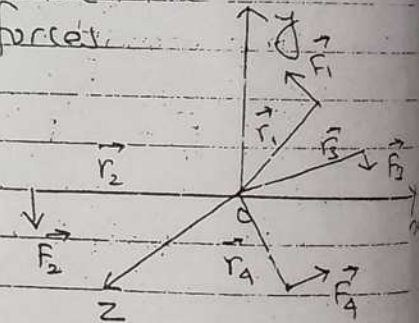 forces.
y
F⃗₁
r⃗₁
r⃗₃
F⃗₃
r⃗₂
O
F⃗₂
r⃗₄
F⃗₄
Z